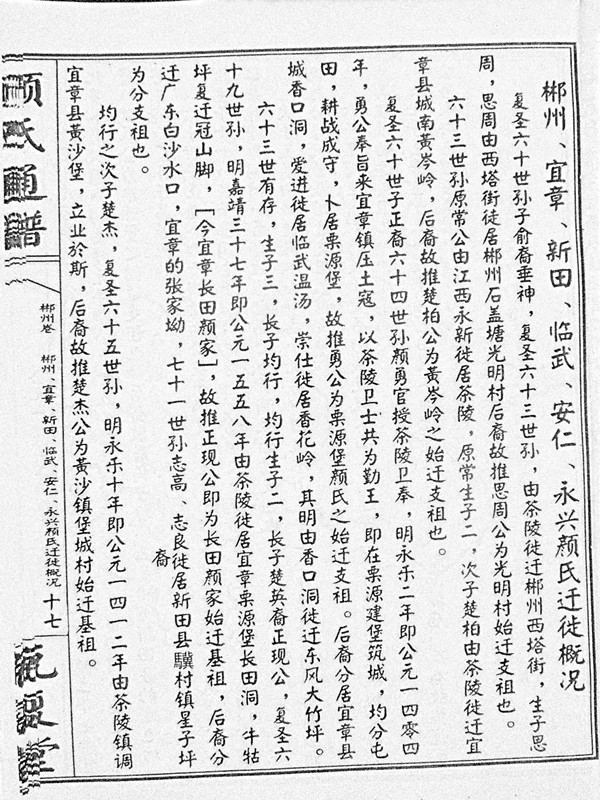 郴州、宜章、新田、临武、安仁、永兴颜氏迁徙概况
复圣六十世孙子俞裔垂神，复圣六十三世孙，由茶陵徙迁郴州西塔街，生子思
周，思周由西塔街徒居郴州石盖塘光明村后裔故推思周公为光明村始迁支祖也。
六十三世孙原常公由江西永新徙居茶陵，原常生子二，次子楚柏由茶陵徙迁宜
章县城南黄岑岭，后裔故推楚柏公为黄岑岭之始迁支祖也。
复圣六十世子正裔六十四世孙颜勇官授茶陵卫奉，明永乐二年即公元一四零四
年，勇公奉旨来宜章镇压土寇，以茶陵卫士共为勤王，即在栗源建堡筑城，均分屯
田，耕战戍守，卜居栗源堡，故推勇公为栗源堡颜氏之始迁支祖。后裔分居宜章县
城香口洞，爱进徙居临武温汤，崇仕徙居香花岭，其明由香口洞徙迁东风大竹坪。
六十三世有存，生子三，长子均行，均行生子二，长子楚英裔正现公，复圣六
十九世孙，明嘉靖三十七年即公元一五五八年由茶陵徙居宜章栗源堡长田洞，牛牯
坪复迁冠山脚，［今宜章长田颜家］，故推正现公即为长田颜家始迁基祖，后裔分
迁广东白沙水口，宜章的张家坳，七十一世孙志高、志良徙居新田县骥村镇星子坪
裔
为分支祖也。
均行之次子楚杰，复圣六十五世孙，明永乐十年即公元一四一二年由茶陵镇调
宜章县黄沙堡，立业於斯，后裔故推楚杰公为黄沙镇堡城村始迁基祖。
颜氏通谱
郴州卷
郴州、宜章、新田、临武、安仁、永兴颜氏迁徙概况
十七